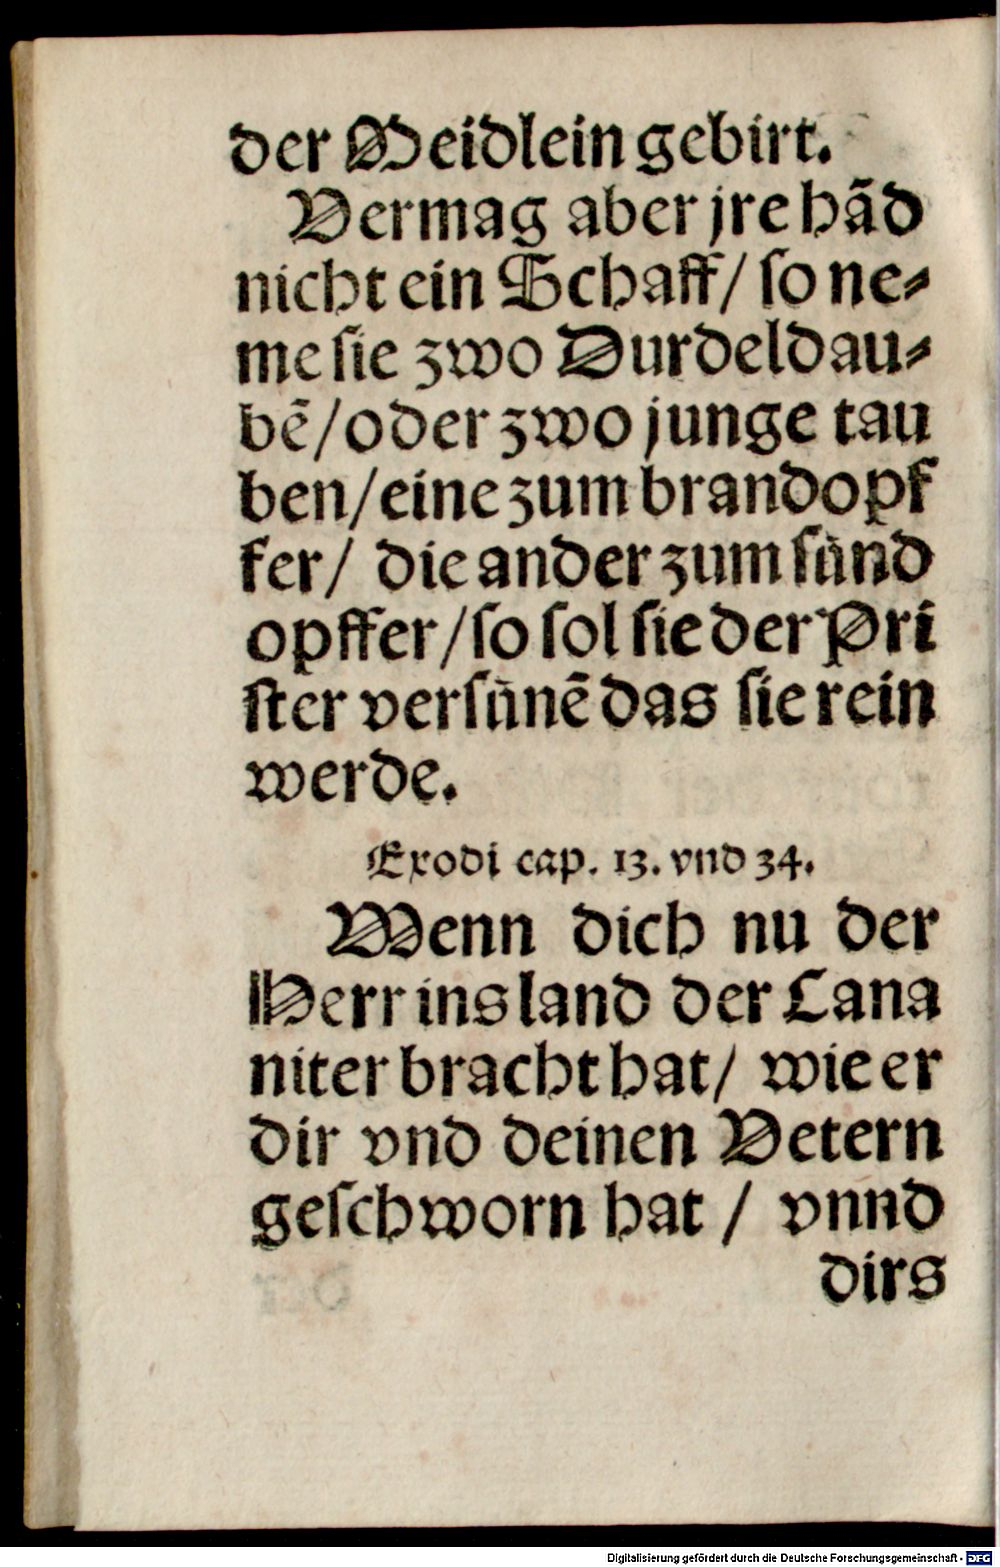 der Meidlein gebirt.
Vermag aber jre hãd
nicht ein Schaff/ so ne⸗
me sie zwo Durdeldau⸗
bẽ/oder zwo junge tau
ben/eine zum brandopf
fer/ die ander zum sůnd
opffer/so sol sie der Pri
ster versůnẽ das sie rein
werde.
Exodi cap. 13. vnd 34.
Wenn dich nu der
Herr ins land der Cana
niter bracht hat/ wie er
dir vnd deinen Vetern
geschworn hat / vnnd
dirs
Digitalisierung gefördert durch die Deutsche Forschungsgemeinschaft - DFG